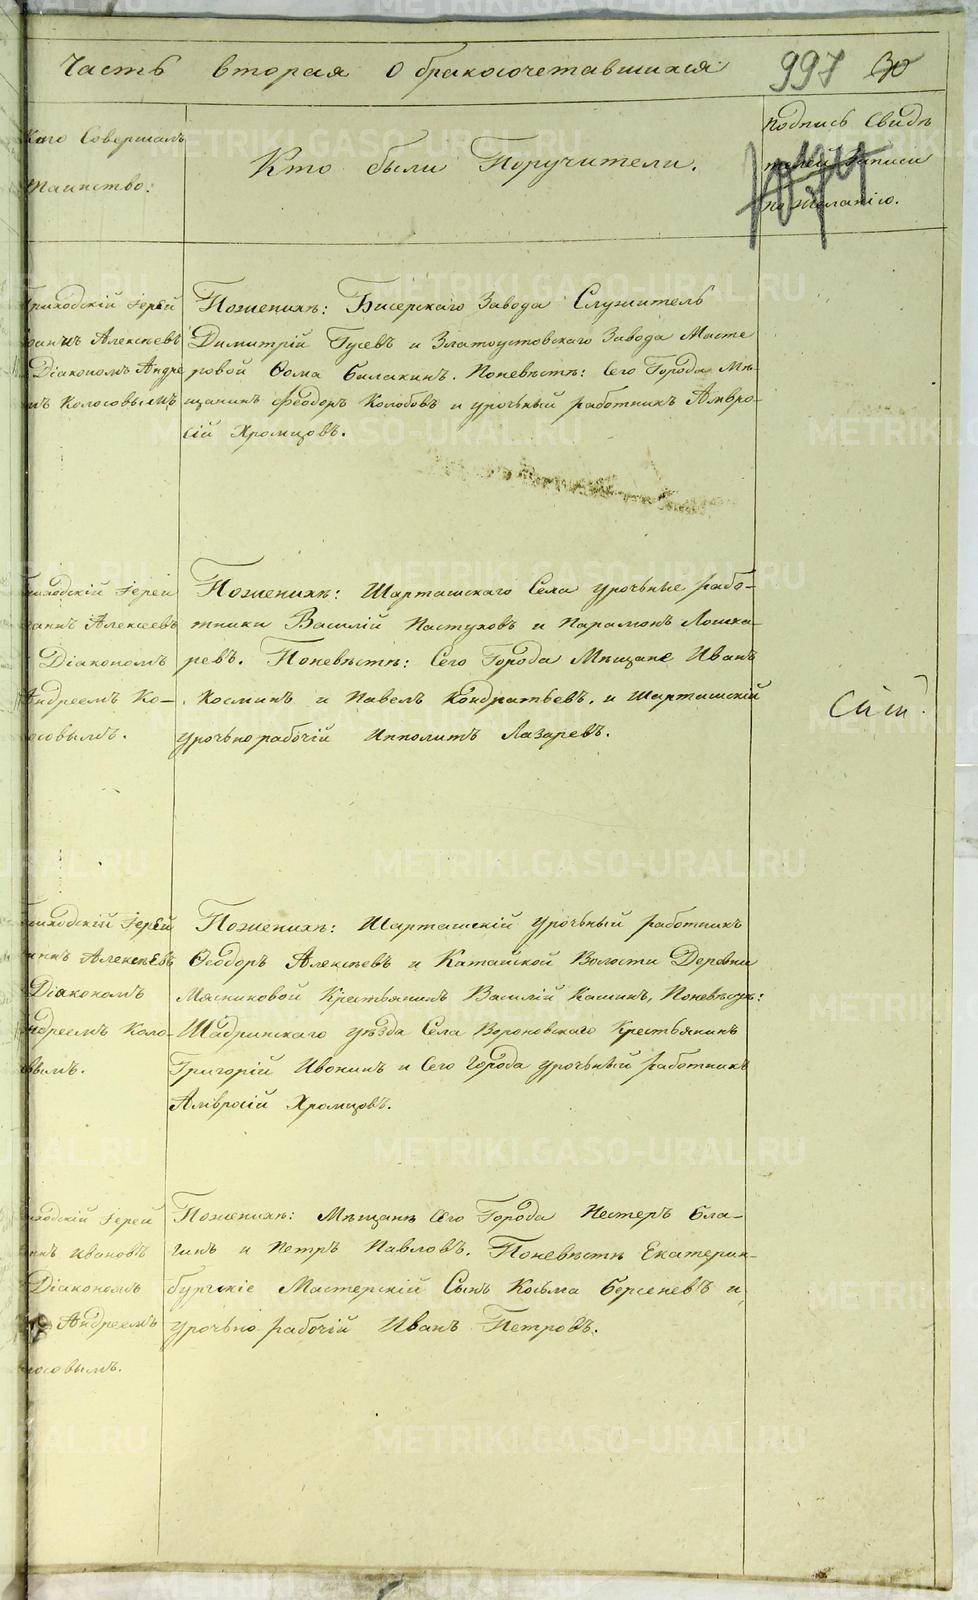 Часть вторая О бракосочетавшихся 997 30
Кто Совершалъ
Таинство:
Кто были Поручители.
Подпись Свидѣ
телей Записи
по Желанію.
Приходскій Іерей
Іоаннъ Алексѣевъ
Діакономъ Андре
мъ Колосовымъ
По женихѣ: Бисерскаго Завода Служитель
Димитрій Гусевъ и Златоустовскаго Завода Масте
ровой Ѳома Билакинъ. По невѣстѣ: Сего Города Мѣ-
щанинъ Феодоръ Колобовъ и урочный работникъ Амвро-
сій Хромцовъ.
Приходскій Іерей
Іоаннъ Алексѣевъ
Діакономъ
Андреемъ Ко-
лосовымъ.
По женихѣ: Шарташскаго Села урочные рабо-
тники Василій Пастуховъ и Парамонъ Лошка-
ревъ. По невѣстѣ: Сего Города Мѣщане Иванъ
Косминъ и Павелъ Кондратьевъ, и Шарташскій
урочно рабочій Ипполитъ Лазаревъ.
Приходскій Іерей
Іоаннъ Алексѣевъ
Діакономъ
Андреемъ Коло-
совымъ.
По женихѣ: Шарташскій урочный работникъ
Ѳеодоръ Алексѣевъ и Катайской Волости Деревни
Мясниковой Крестьянинъ Василій Кашинъ, По невѣстѣ:
Шадринскаго уѣзда Села Вороновскаго Крестьянинъ
Григорій Ивонинъ и Сего Города урочный работникъ
Амвросій Хромцовъ.
Приходскій Іерей
Іоаннъ Ивановъ
Діакономъ
Андреемъ
Колосовымъ.
По женихѣ: Мѣщане Сего Города Нестеръ Бла-
гинъ и Петръ Павловъ. По невѣстѣ Екатерин-
бургскіе Мастерскій Сынъ Козьма Берсеневъ и
урочно рабочій Иванъ Петровъ.
METRIKI.GASO-URAL.RU